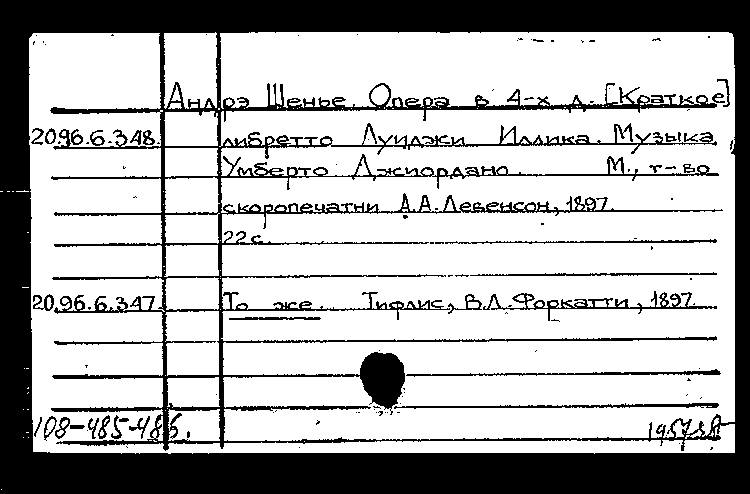 Андрэ Шенье. Опера в 4-х д. [Краткое]
20.96.6.348. либретто Луиджи Иллика. Музыка
Умберто Джиордано. М., т-во
скоропечатни А.А. Левенсон, 1897.
22 с.
20.96.6.347. То же. Тифлис, В.Л. Форкатти, 1897.
108-485-486.